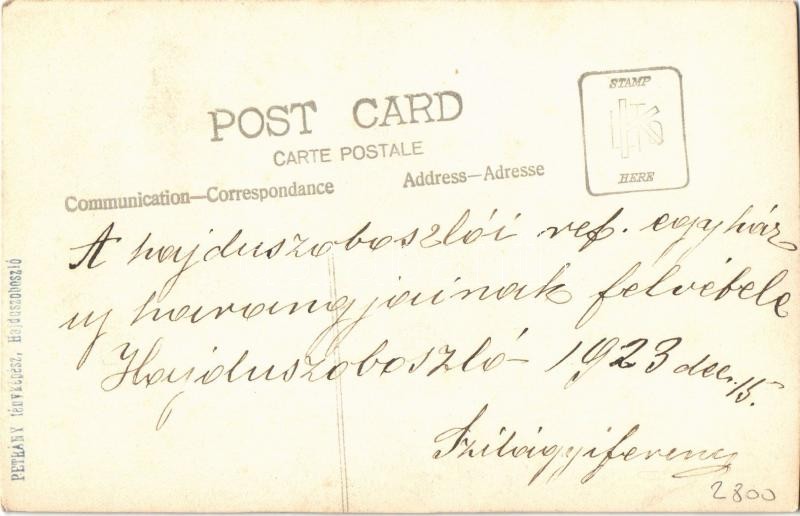 POST CARD
CARTE POSTALE
Communication—Correspondance
Address—Adresse
STAMP
HERE
A hajduszoboszlói ref. egyház
uj harangjainak felvétele
Hajduszoboszló 1923 dec. 15.
Szilágyi ferenc
2800
PETRÁNY fényképész, Hajduszoboszló